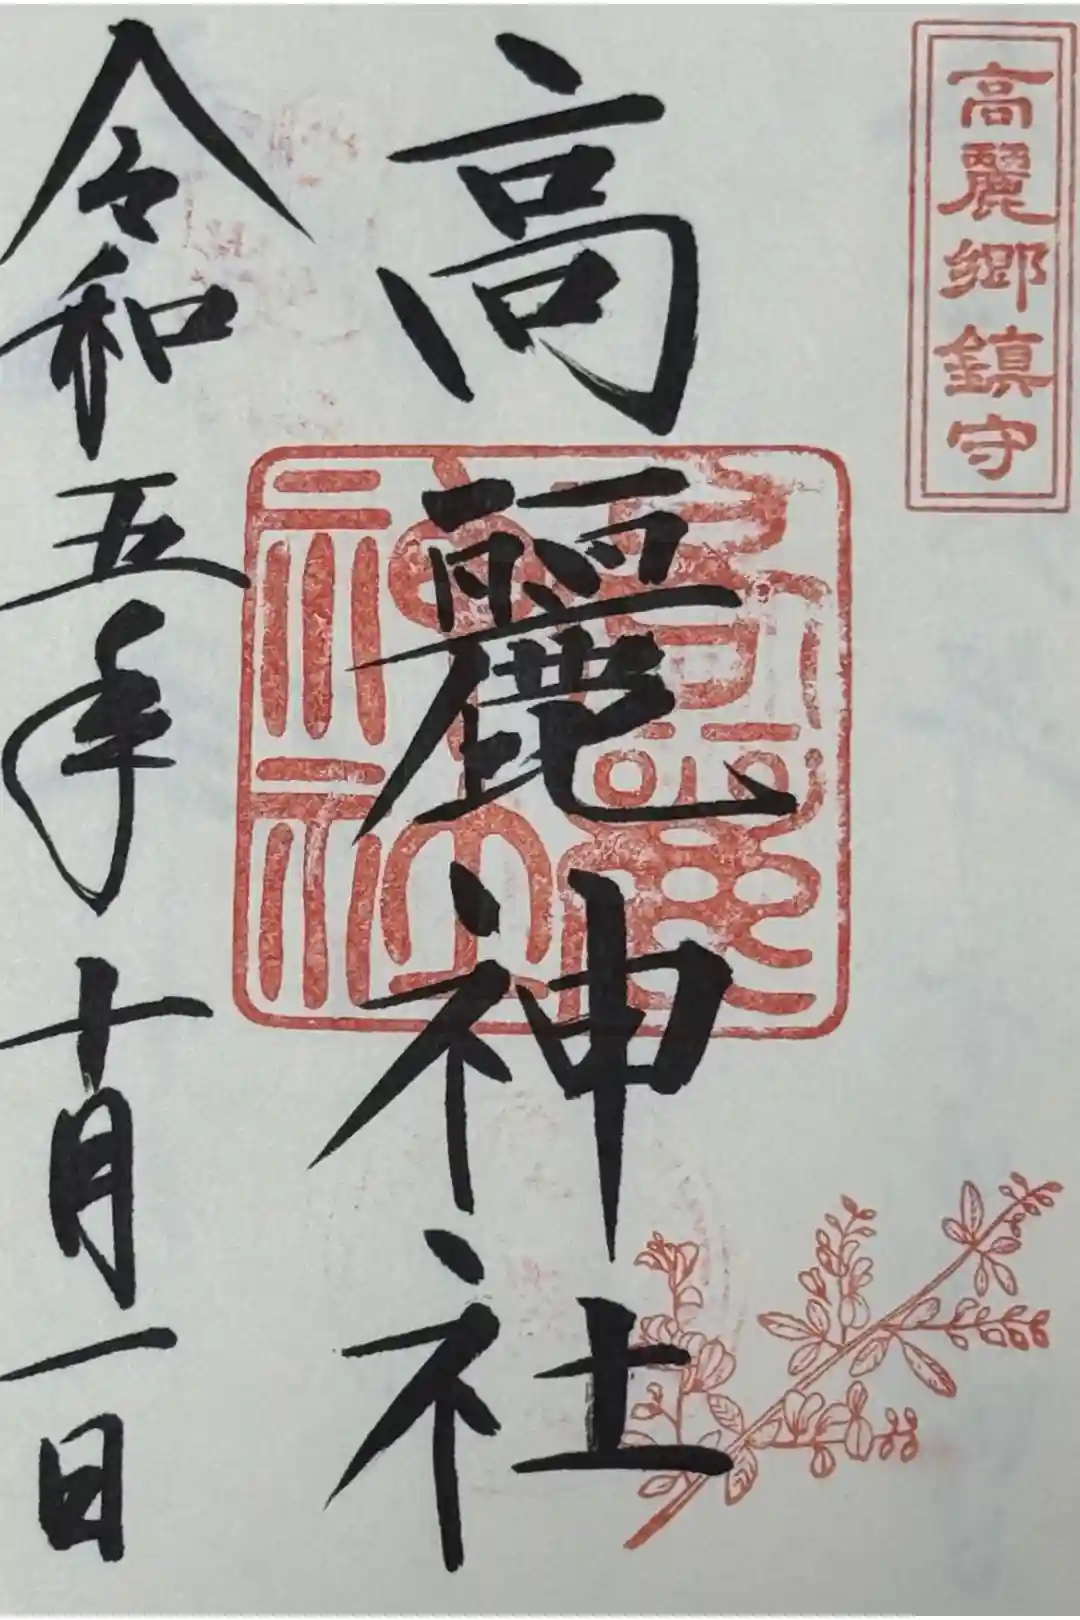 高麗郷鎮守
高麗神社
高麗神社
令和五年十月一日